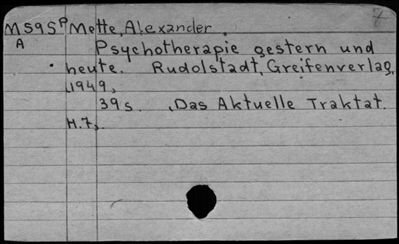 7
M595P Mette, Alexander.
A Psychotherapie gestern und
heute. Rudolstadt, Greifenverlag,
1949,
39s. (Das Aktuelle Traktat.
H.7).